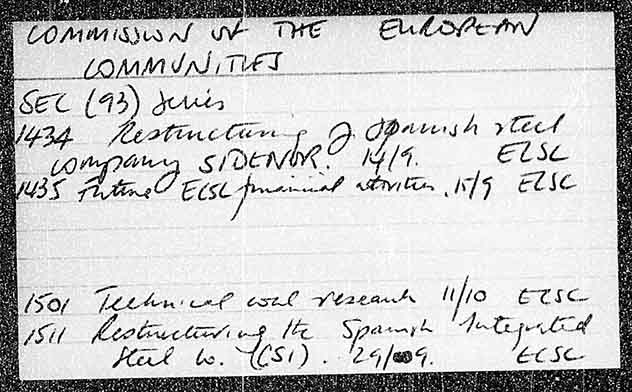 COMMISSION OF THE EUROPEAN
COMMUNITIES
SEC (93) Series
1434 Restructuring of Spanish steel
company SIDENOR. 14/9. ECSC
1435 Future ECSC financial activities. 15/9 ECSC
1501 Technical coal research 11/10 ECSC
1511 Restructuring the Spanish Integrated
Steel Co. (CSI). 29/9. ECSC